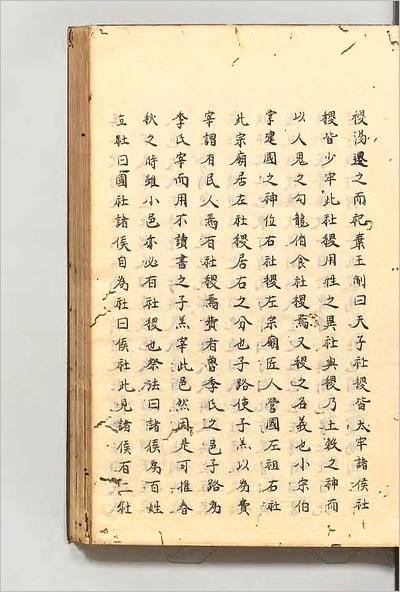 稷湯遷之而祀棄王制曰天子社稷皆太牢諸侯社
稷皆少牢此社稷用牲之異社與稷乃土穀之神而
以人鬼之勾龍伯食社稷焉又稷之名義也小宗伯
掌建國之神位右社稷左宗廟匠人營國左祖右社
此宗廟居左社稷居右之分也子路使子羔以為費
宰謂有民人焉有社稷焉費有魯季氏之邑子路為
季氏宰而用不讀書之子羔宰此邑然因是可推春
秋之時雖小邑亦必有社稷也祭法曰諸侯為百姓
立社曰國社諸侯自為社曰侯社此見諸侯有二社